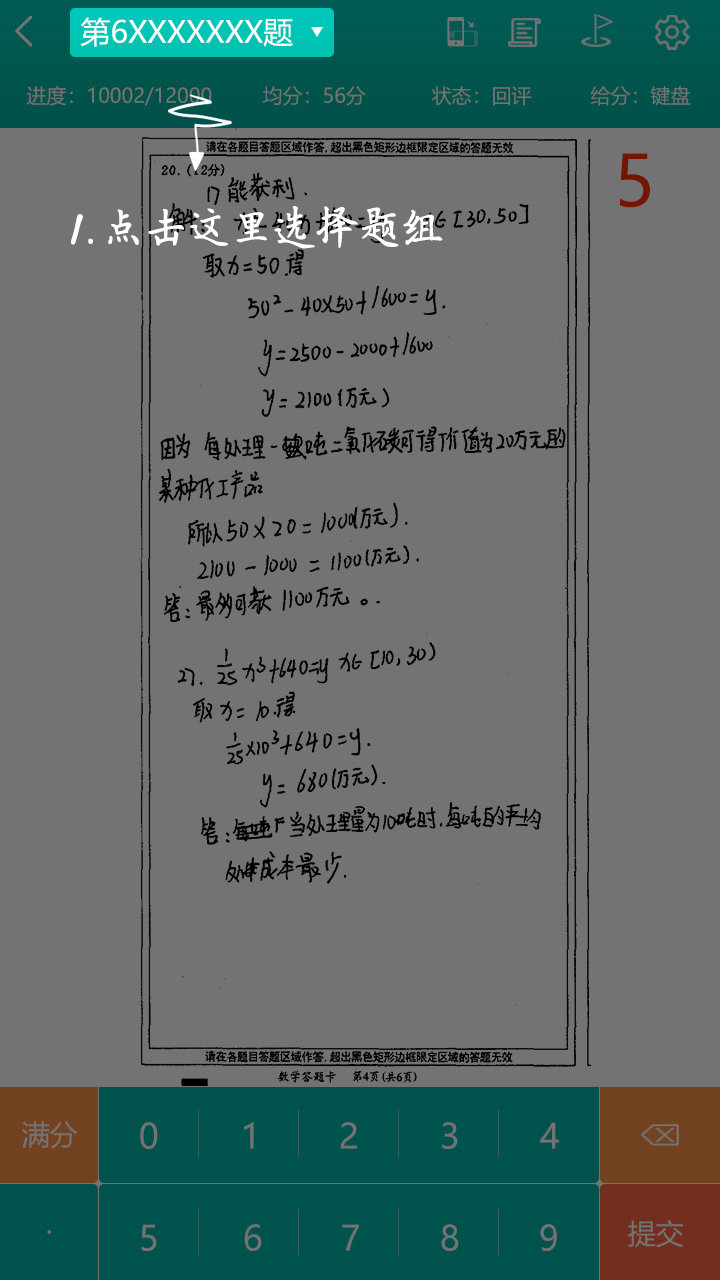 第6XXXXXXX题
进度：10002/12000 均分：56分 状态：回评 给分：键盘
请在各题目答题区域作答，超出黑色矩形边框限定区域的答题无效
5
20．（12分）
1) 能获利．
1.点击这里选择题组
∈[30,50]
取x=50得
50²-40×50+1600=y.
y=2500-2000+1600
y=2100(万元)
因为 每处理一吨二氧化碳可得价值为20万元的
某种化工产品
所以50×20=1000(万元).
2100-1000=1100(万元).
答：最多可获1100万元。.
2). 1/25 x³+640=y x∈[10,30)
取x=10得
1/25×10³+640=y.
y=680(万元).
答：当处理量为10吨时,每吨的平均
处理成本最少.
请在各题目答题区域作答，超出黑色矩形边框限定区域的答题无效
数学答题卡 第4页(共6页)
满分 0 1 2 3 4
· 5 6 7 8 9 提交